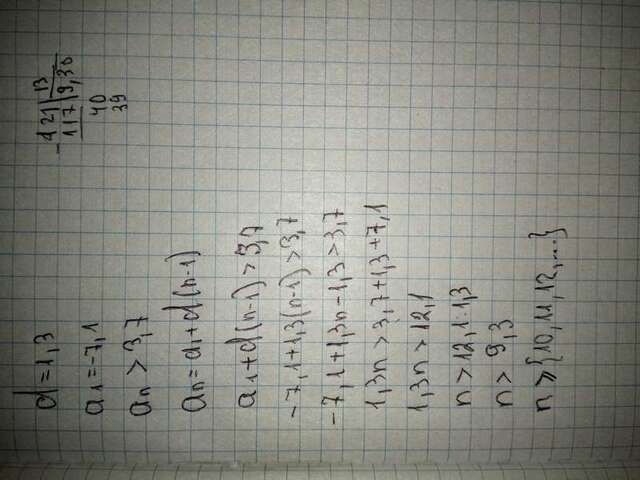 d = 1,3
a1 = -7,1
an > 3,7
an = a1 + d(n-1)
a1 + d(n-1) > 3,7
-7,1 + 1,3(n-1) > 3,7
-7,1 + 1,3n - 1,3 > 3,7
1,3n > 3,7 + 1,3 + 7,1
1,3n > 12,1
n > 12,1 : 1,3
n > 9,3
n ≥ {10, 11, 12, ...}
- 121 | 13
117 | 9,30
40
39